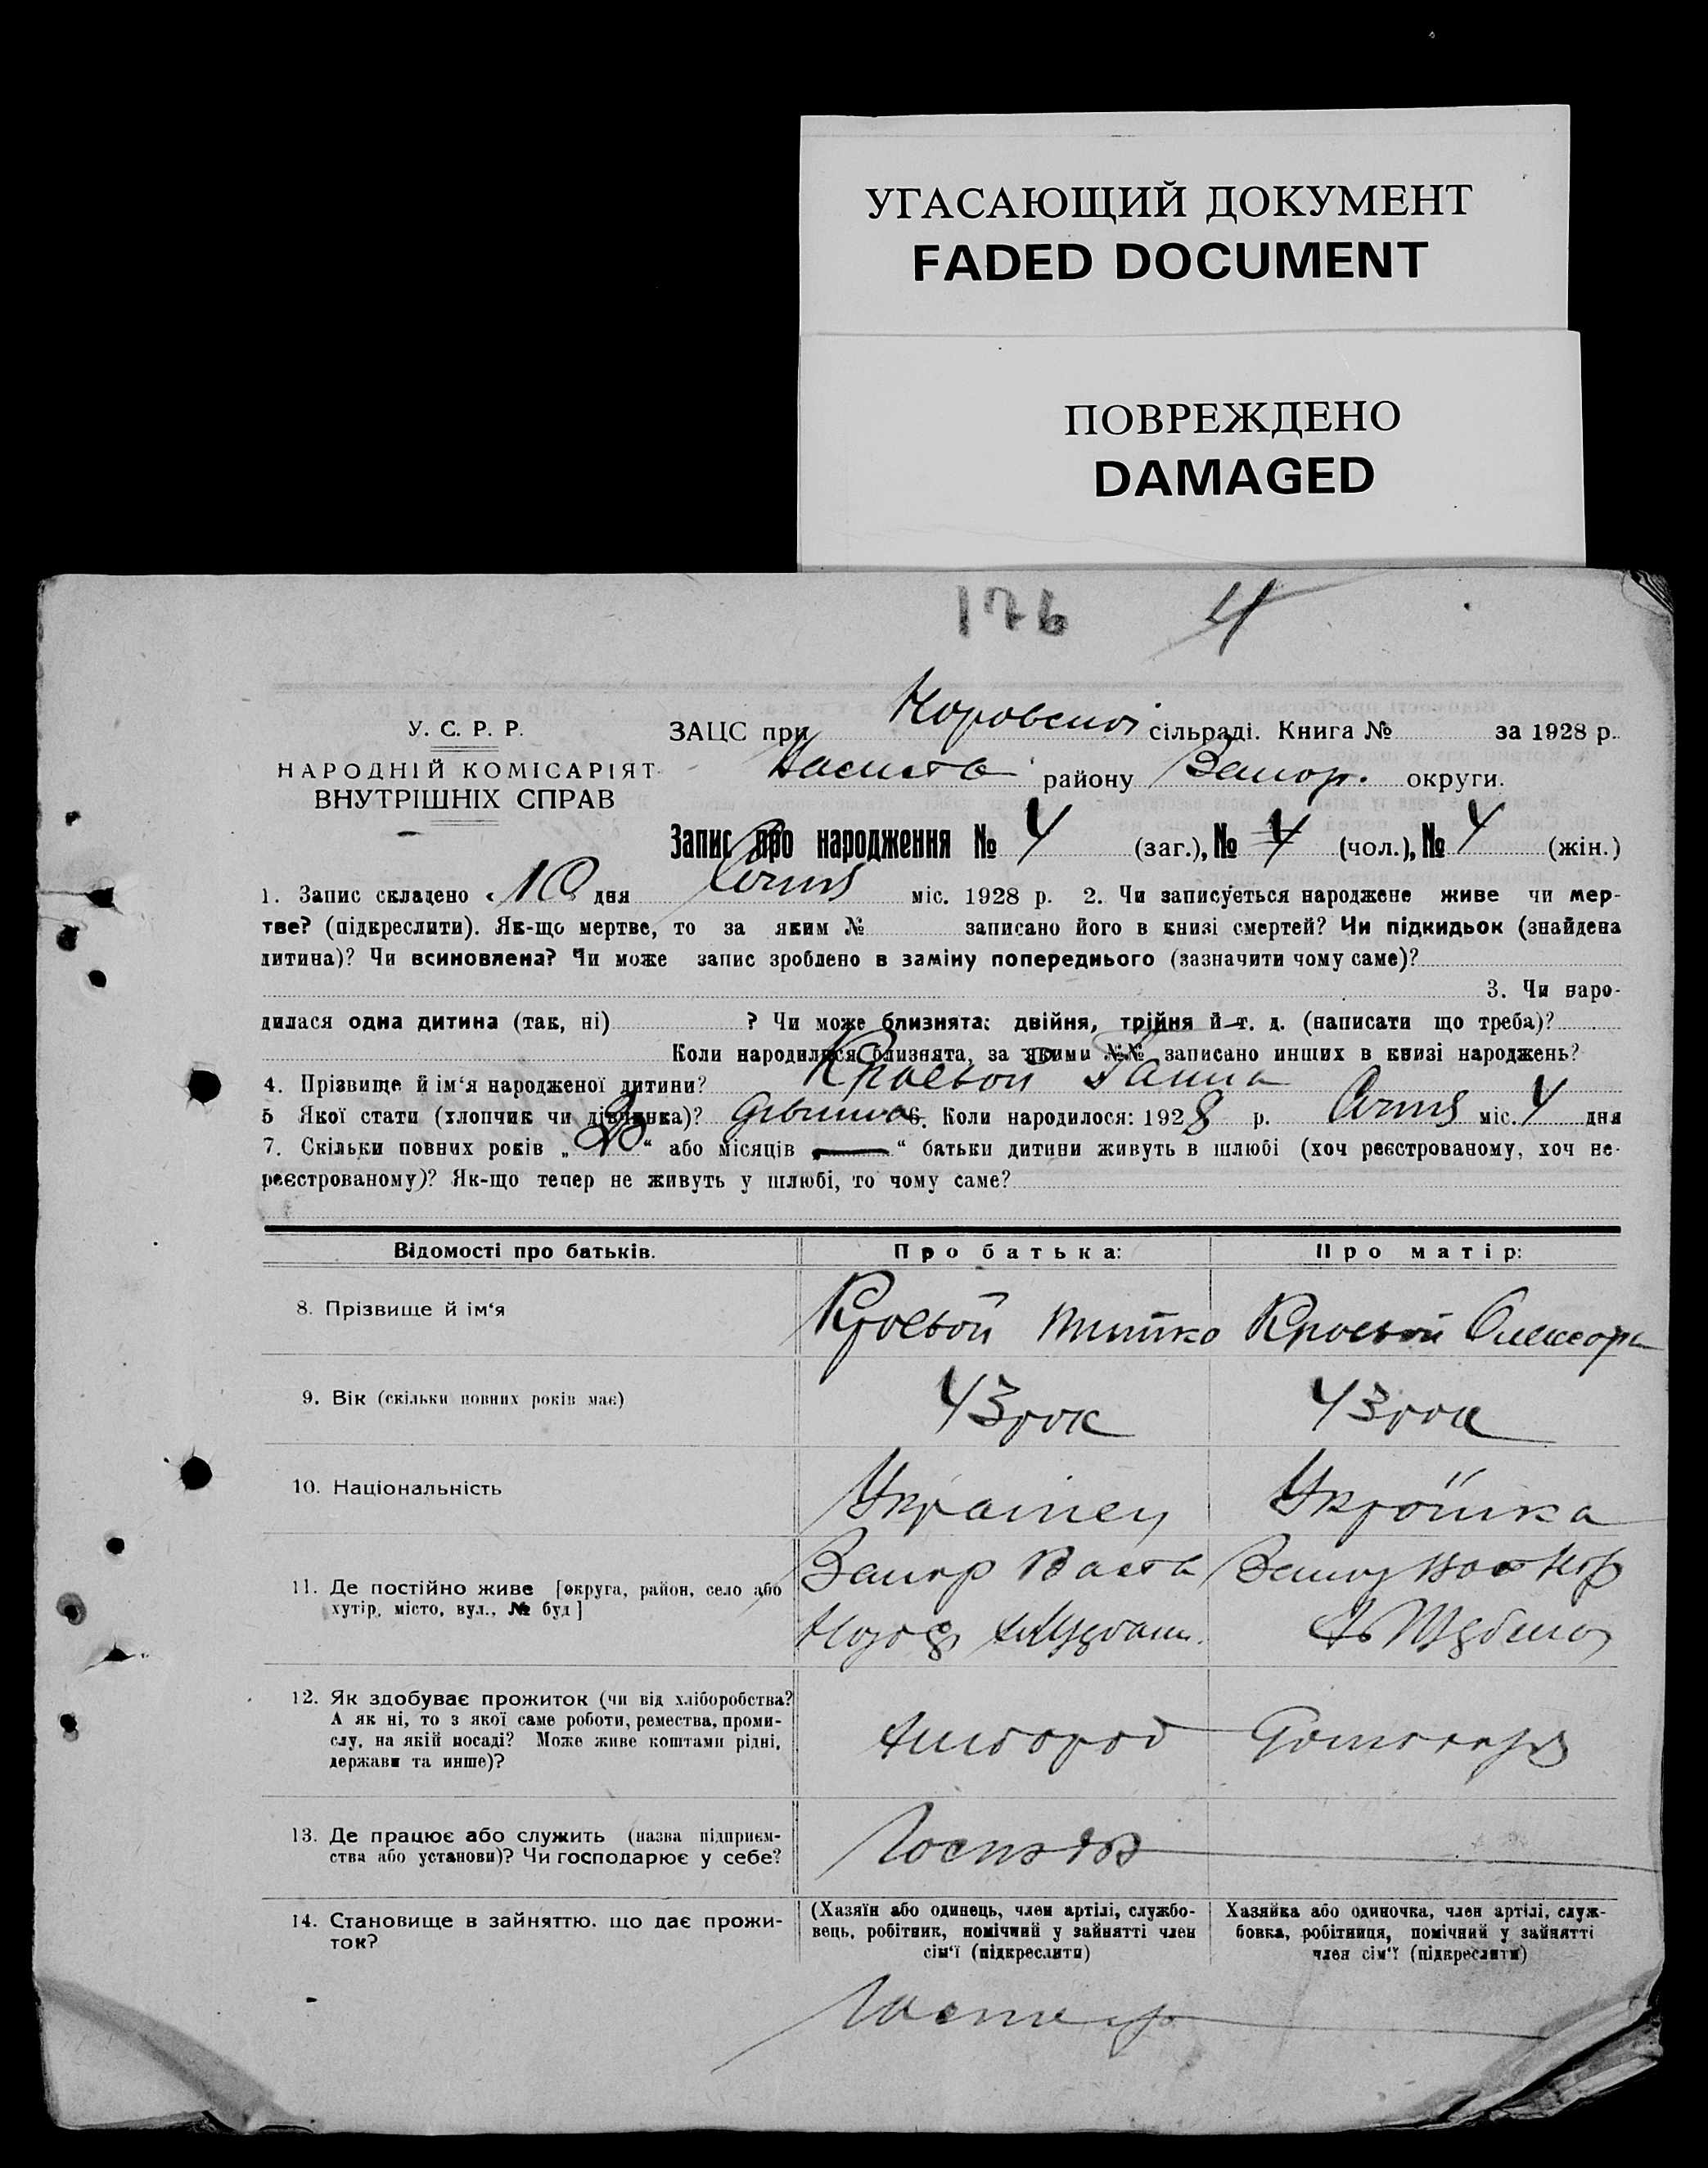 УГАСАЮЩИЙ ДОКУМЕНТ
FADED DOCUMENT
ПОВРЕЖДЕНО
DAMAGED
176 4
У. С. Р. Р.
НАРОДНІЙ КОМІСАРІЯТ
ВНУТРІШНІХ СПРАВ
ЗАЦС при сільраді. Книга № за 1928 р.
району Запор. округи.
Запис про народження № 4 (заг.), № 4 (чол.), № 4 (жін.)
1. Запис складено « 10 дня міс. 1928 р. 2. Чи записується народжене живе чи мер-
тве? (підкреслити). Як-що мертве, то за яким № записано його в книзі смертей? Чи підкидьок (знайдена
дитина)? Чи всиновлена? Чи може запис зроблено в заміну попереднього (зазначити чому саме)?
3. Чи наро-
дилася одна дитина (так, ні) ? Чи може близнята: двійня, трійня й т. д. (написати що треба)?
Коли народилися близнята, за якими №№ записано инших в книзі народжень?
4. Прізвище й ім‘я народженої дитини? Ганна
5 Якої стати (хлопчик чи дівчинка)? 6. Коли народилося: 1928 р. міс. 4 дня
7. Скільки повних років „ “ або місяців „ “ батьки дитини живуть в шлюбі (хоч реєстрованому, хоч не-
реєстрованому)? Як-що тепер не живуть у шлюбі, то чому саме?
Відомості про батьків. Про батька: Про матір:
8. Прізвище й ім‘я
9. Вік (скільки повних років має) 43 рок 43 рок
10. Національність Українец Українка
11. Де постійно живе [округа, район, село або
хутір, місто, вул., № буд] Запор
12. Як здобуває прожиток (чи від хліборобства?
А як ні, то з якої саме роботи, ремества, проми-
слу, на якій посаді? Може живе коштами рідні,
держави та инше)?
13. Де працює або служить (назва підприєм-
ства або установи)? Чи господарює у себе?
14. Становище в зайняттю. що дає прожи-
ток?
(Хазяїн або одинець, член артілі, службо-
вець, робітник, помічний у зайнятті член
сім‘ї (підкреслити)
Хазяйка або одиночка, член артілі, служ-
бовка, робітниця, помічний у зайнятті
член сім‘ї (підкреслити)